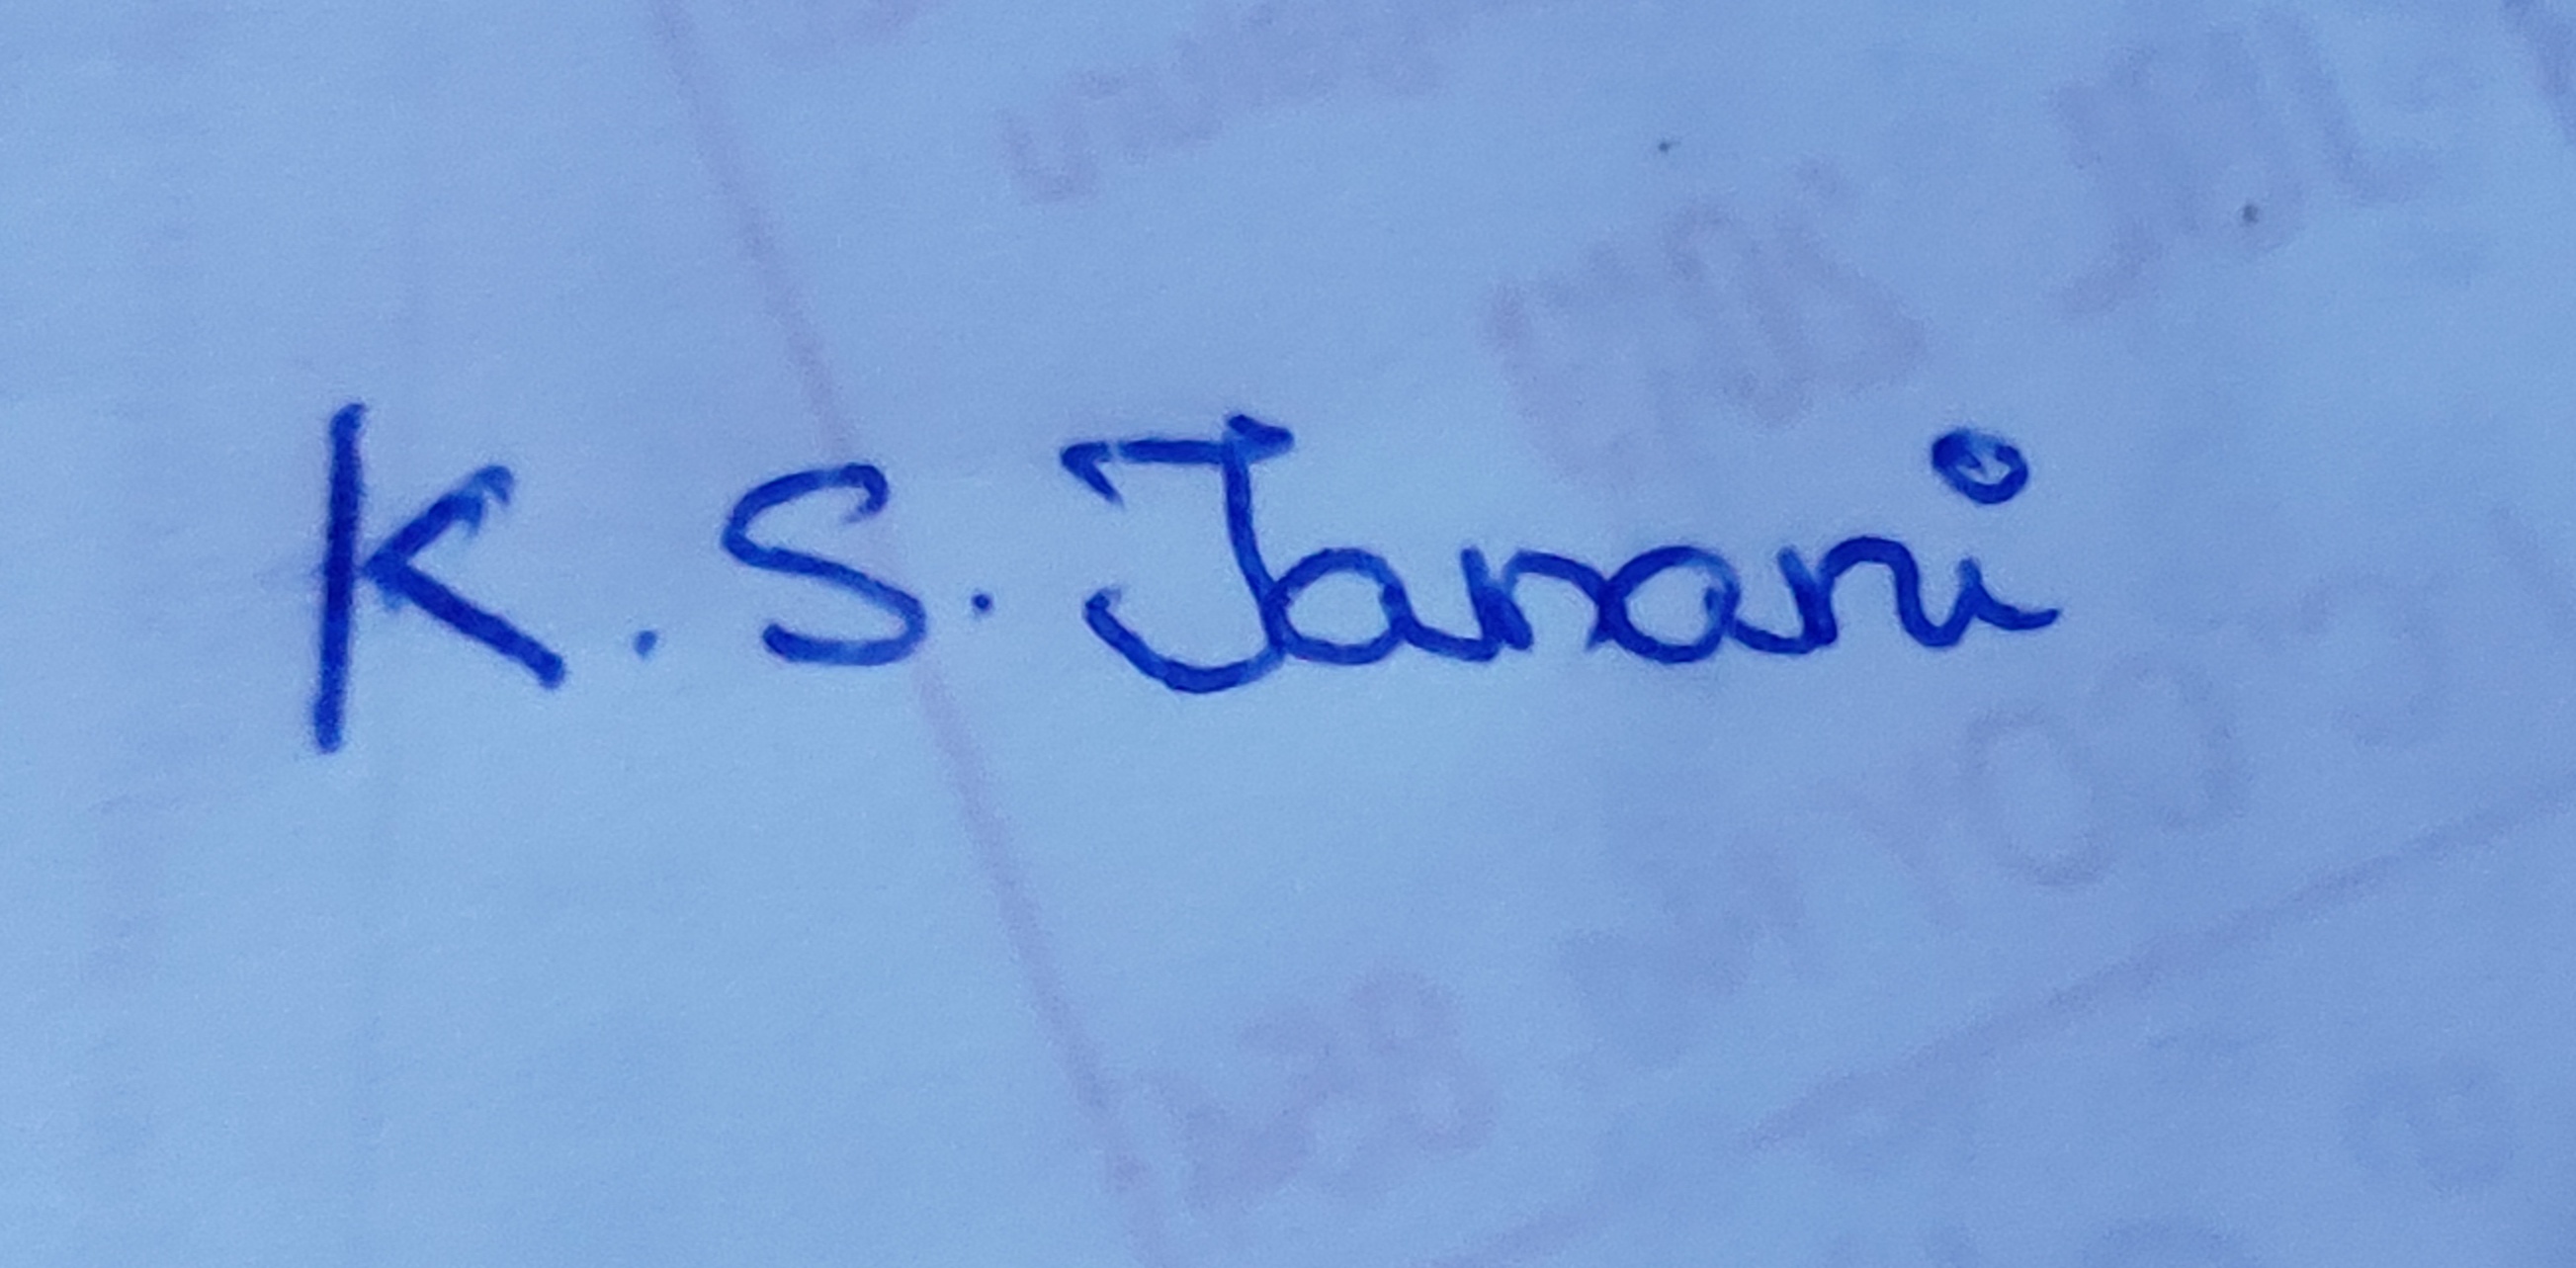 K. S. Janani